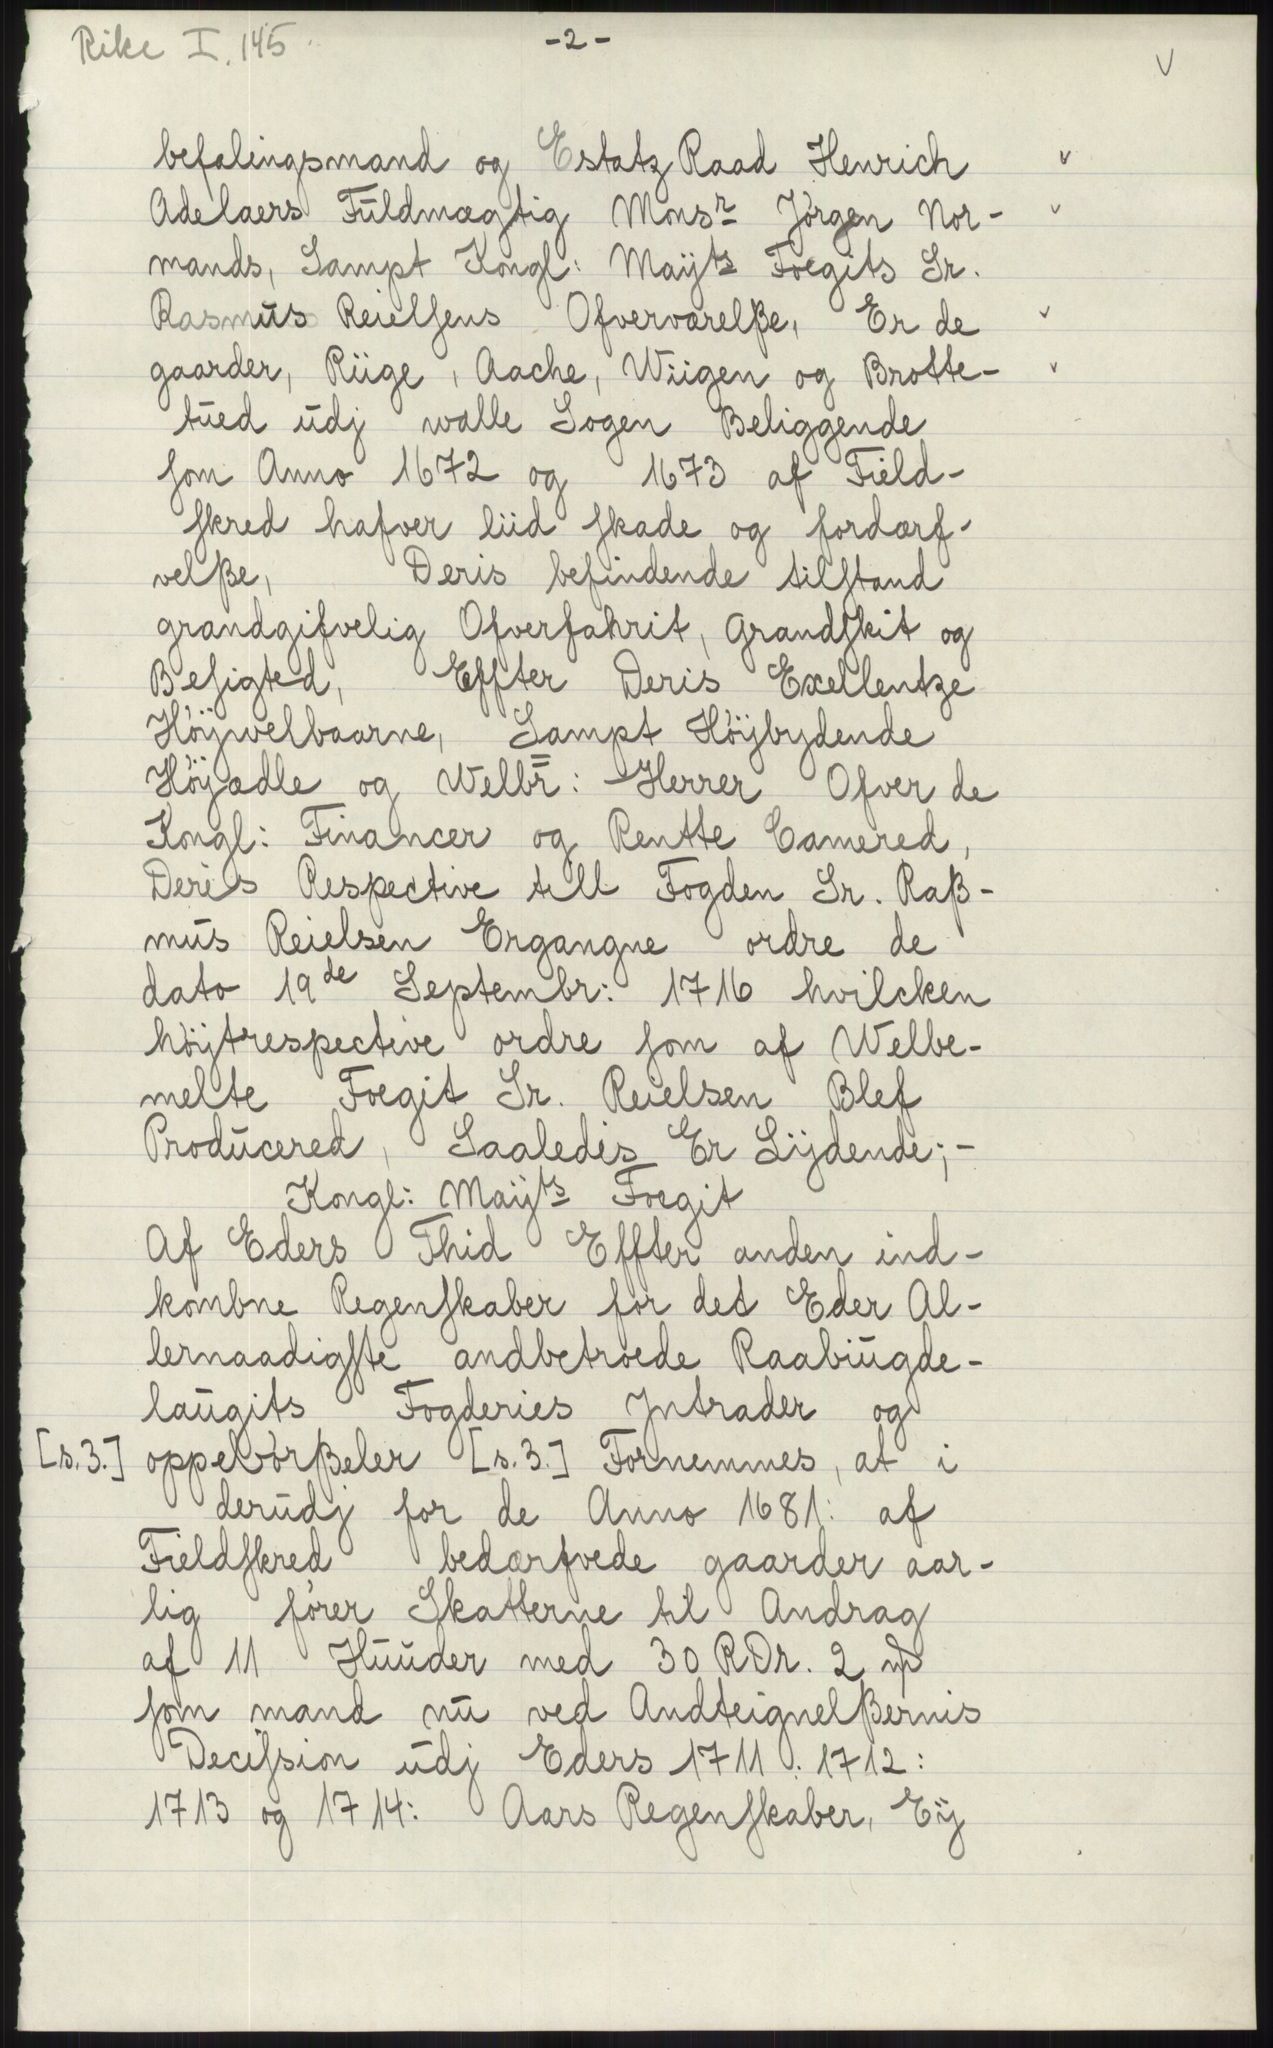 Rike I. 145
-2-
V
befalingsmand og Estatz Raad Henrich v
Adelaers Fuldmægtig Monsr Jørgen Nor- v
mands, Sampt Kongl: Maÿts Foegits Sr.
Rasmus Reielsens Ofverværelße, Er de v
gaarder, Riige, Aache, Wiigen og Brotte- v
tued udj walle Sogen Beliggende
som Anno 1672 og 1673 af Field-
skred hafver liid skade og fordærf-
velße, Deris befindende tilstand
grandgifvelig Ofverfahrit, Grandskit og
Besigted, Effter Deris Exellentze
Høÿwelbaarne, Sampt Høÿbydende
Høÿædle og Welbr: Herrer Ofver de
Kongl: Financer og Rentte Camered,
Deris Respective till Fogden Sr. Raß-
mus Reielsen Ergangne ordre de
dato 19de Septembr: 1716 hvilcken
høÿtrespective ordre som af Welbe-
melte Foegit Sr. Reielsen Blef
Producered, Saaledis Er Lÿdende;-
Kongl: Maÿts Foegit
Af Eders Thid Effter anden ind-
kombne Regenskaber for det Eder Al-
lernaadigste andbetroede Raabiugde-
laugits Fogderies Jntrader og
[s.3.] oppebørßeler [s.3.] Fornemmes, at i
derudj for de Anno 1681: af
Fieldskred bedærfvede gaarder aar-
lig fører Skatterne til Andrag
af 11 Huuder med 30 RDr. 2 mp
som mand nu ved Andteignelßernis
Decission udj Eders 1711: 1712:
1713 og 1714: Aars Regenskaber, Eÿ